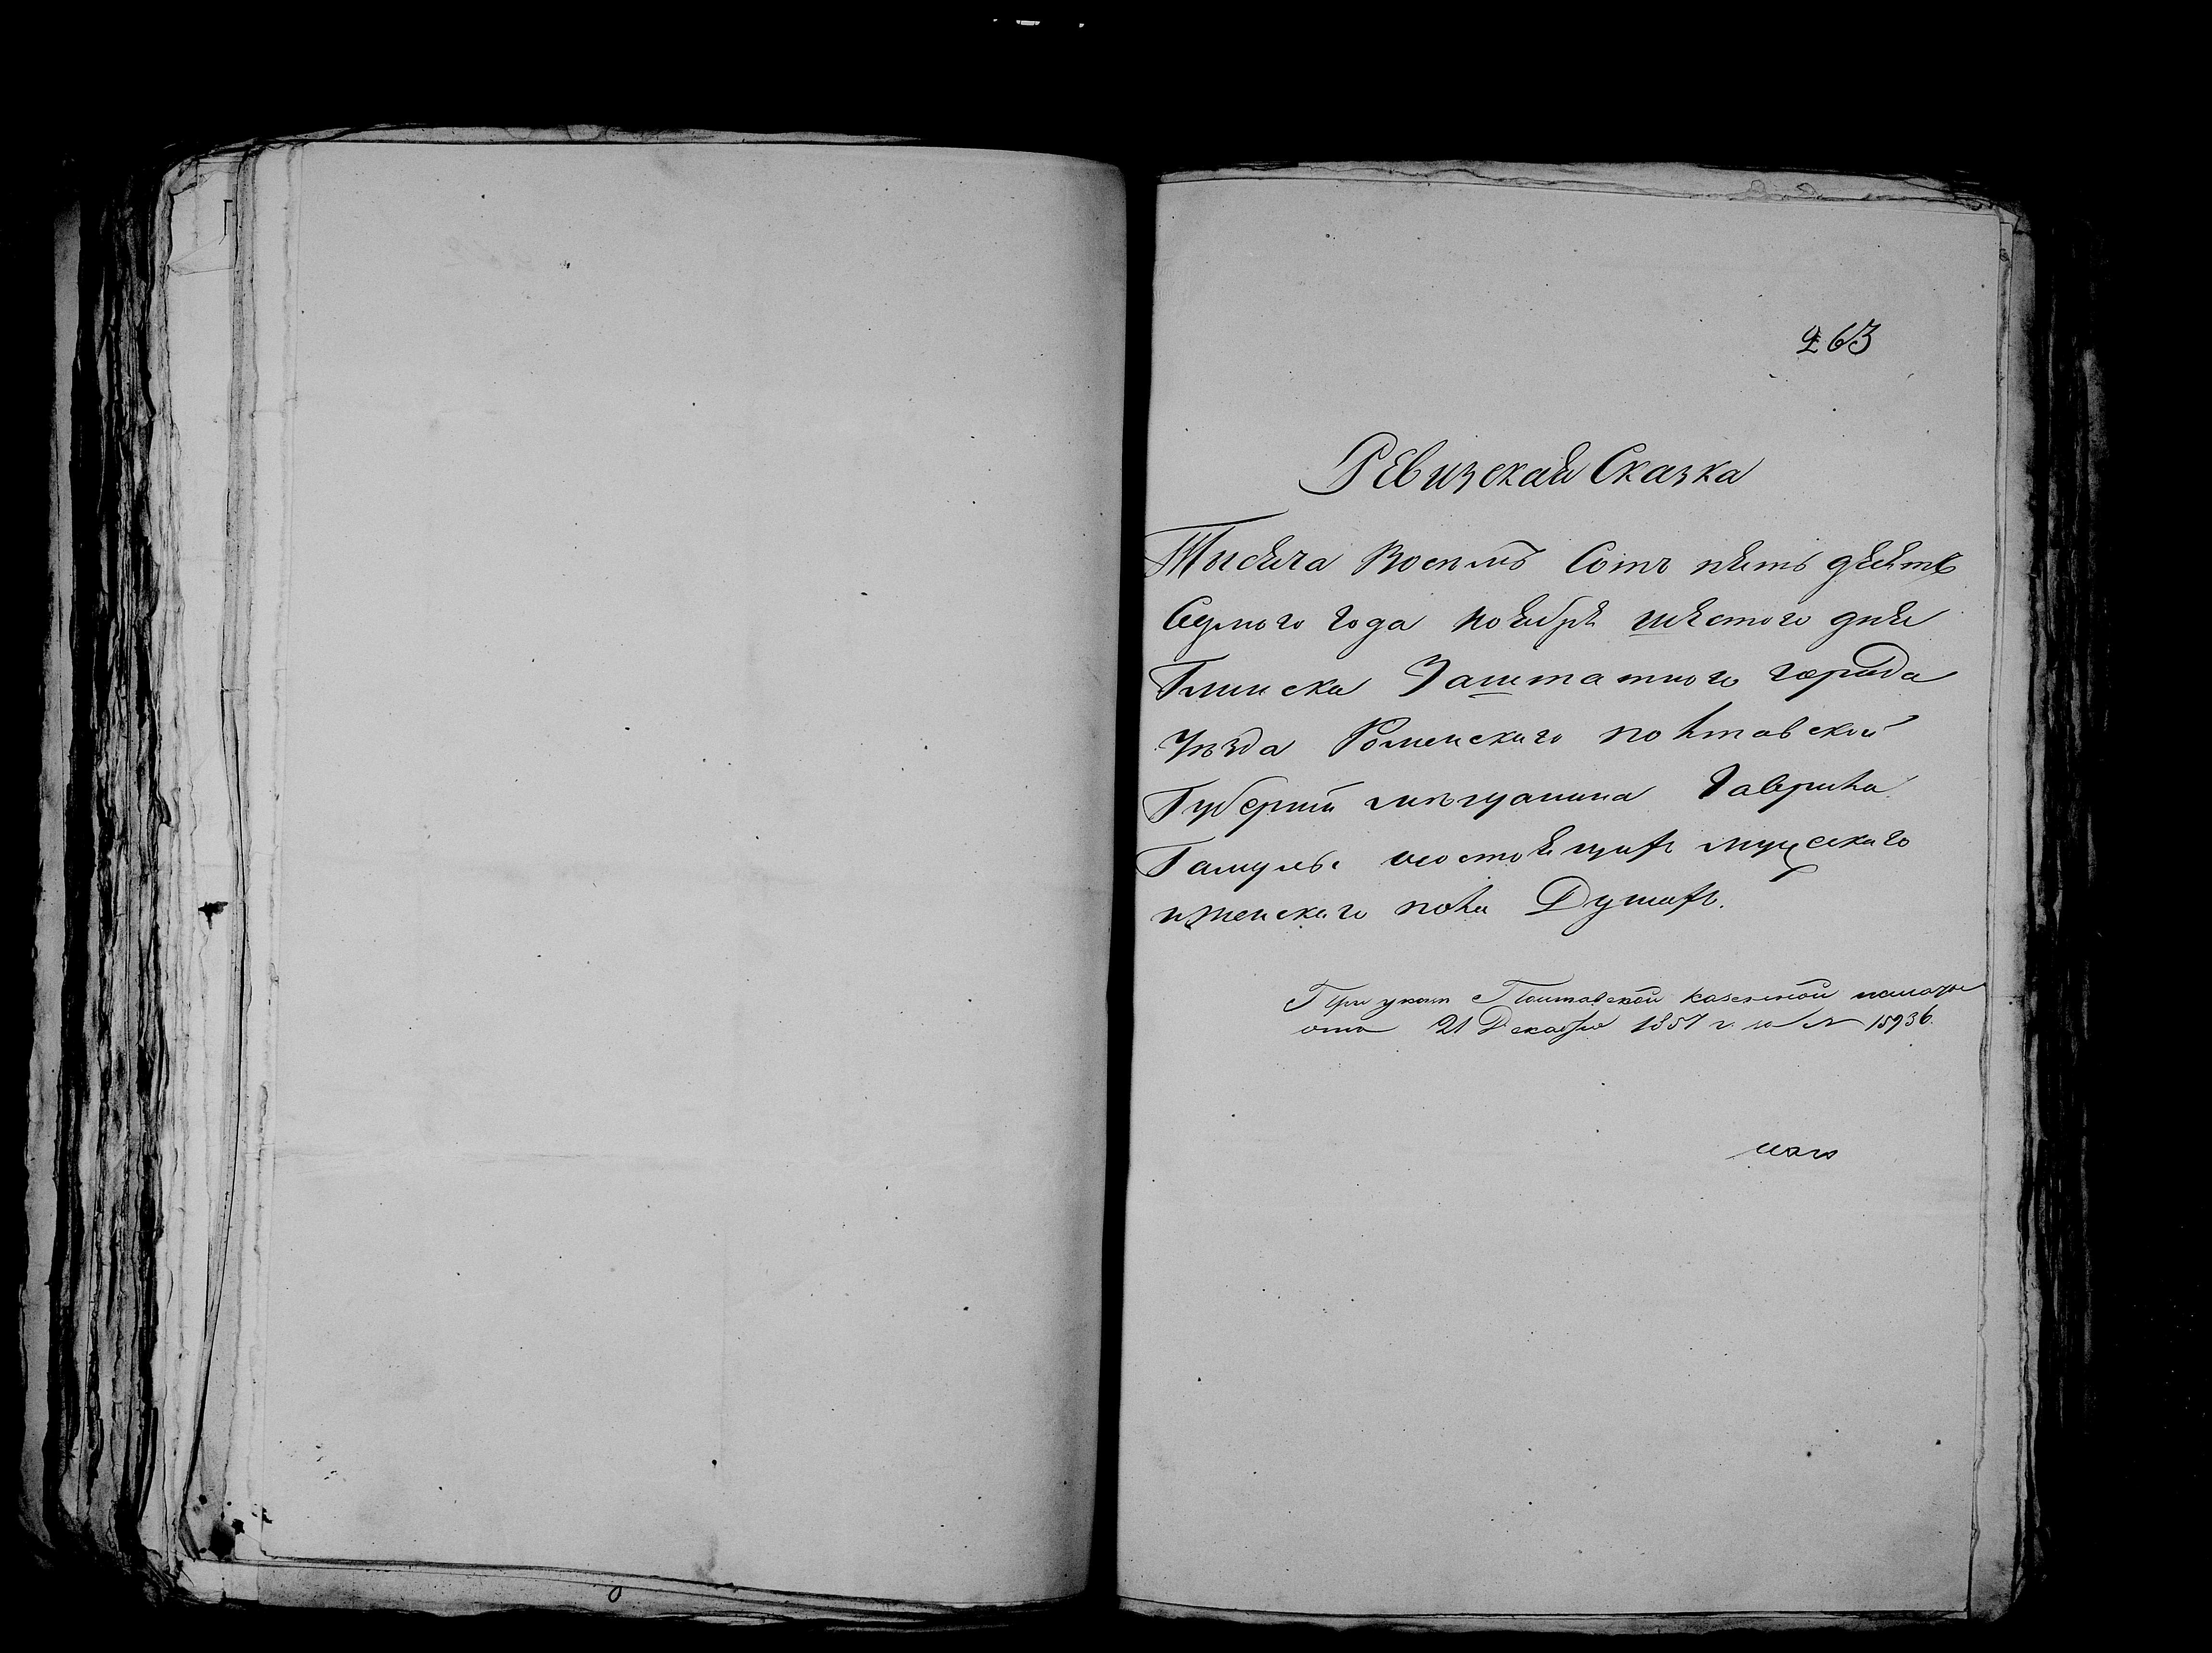 263
Ревизская Сказка
Тысяча Восемь Сотъ пять десятъ
Седмого года ноября шестого дня
Глинска Заштатного города
Уѣзда Роменскаго полтавской
Губерніи мѣщанина Гаврила
состоящихъ мужескаго
и женскаго пола Душахъ.
При указѣ Полтавской казенной палаты
отъ 21 Декабря 1857 г. за № 15936.